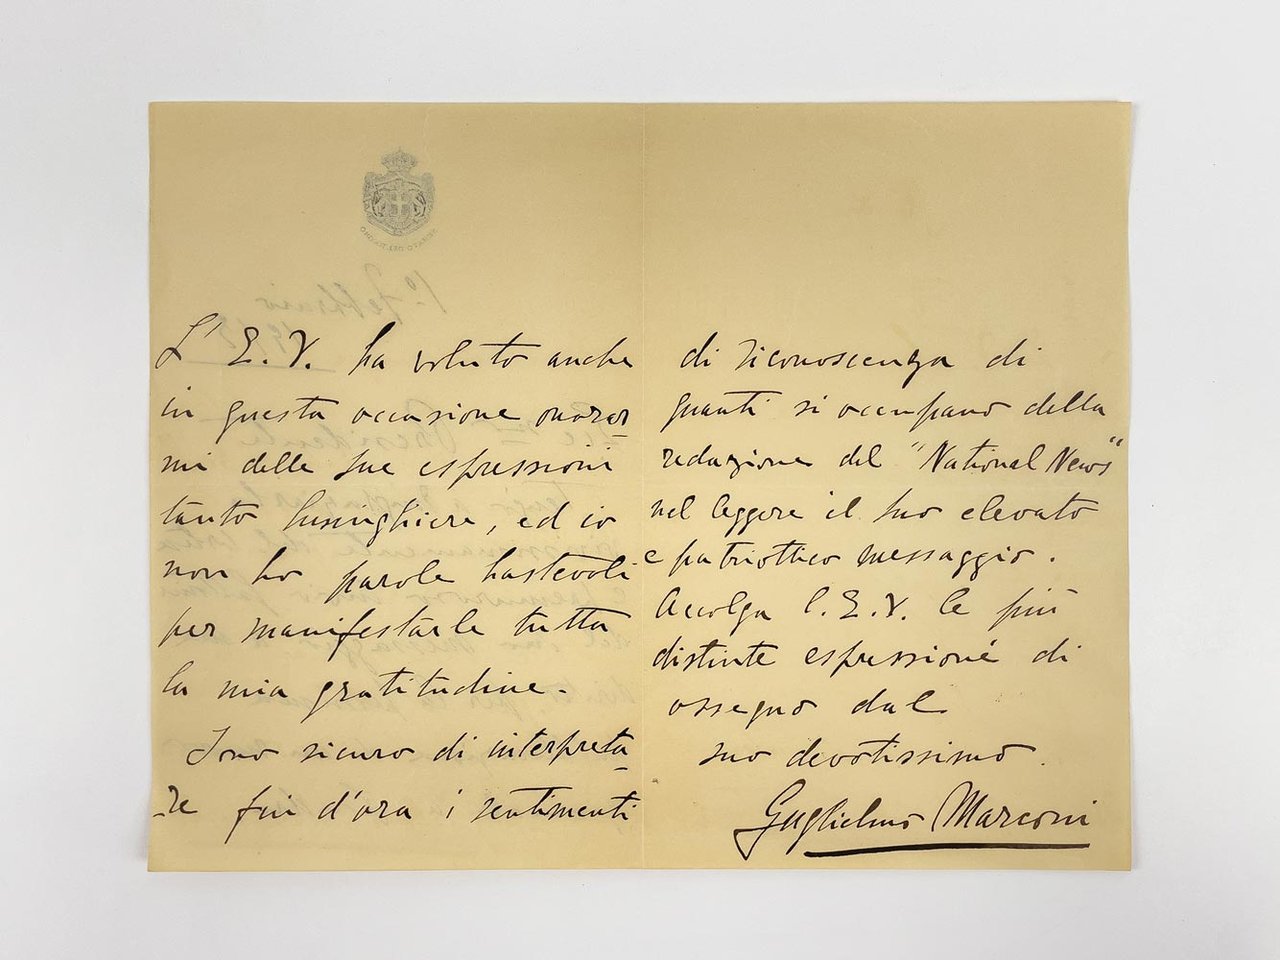 L' E. V. ha voluto anche
in questa occasione onorar-
mi delle sue espressioni
tanto lusinghiere, ed io
non ho parole bastevoli
per manifestarle tutta
la mia gratitudine.
Sono sicuro di interpreta-
-re fin d'ora i sentimenti
di riconoscenza di
quanti si occupano della
redazione del "National News"
nel leggere il suo elevato
e patriottico messaggio.
Accolga l'E.V. le più
distinte espressioni di
ossequio dal
suo devotissimo.
Guglielmo Marconi